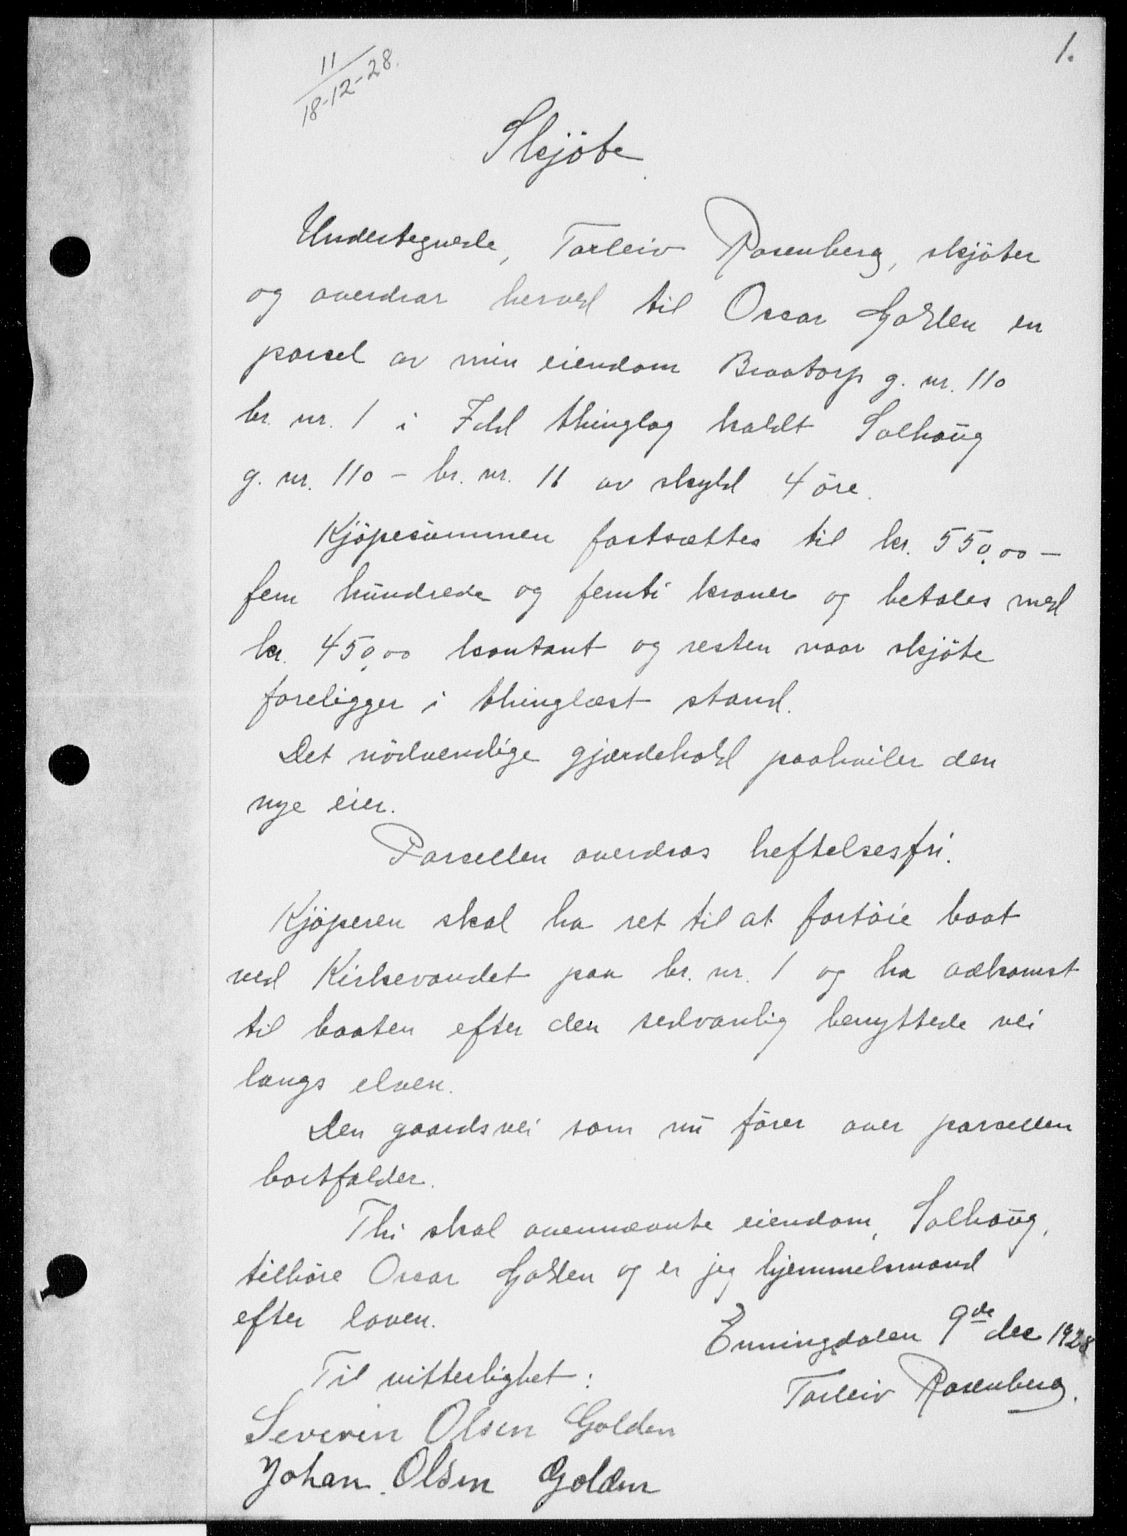 1.
11
18-12-28.
Skjøte
Undertegnede, Torleiv Rosenberg, skjøter
og overdrar herved til Oscar Golden en
parcel av min eiendom Braatorp g. nr. 110
br. nr. 1 i Idd thinglag kaldt Solhaug
g. nr. 110 - br. nr. 11 av skyld 4 øre.
Kjøpesummen fastsættes til kr. 550,00 -
fem hundrede og femti kroner og betales med
kr. 450,00 kontant og resten naar skjøte
foreligger i thinglæst stand.
Det nødvendige gjærdehold paahviler den
nye eier.
Parcellen overdras heftelsesfri.
Kjøperen skal ha ret til at fortøie baat
ved Kirkevandet paa br. nr. 1 og ha adkomst
til baaten efter den sedvanlig benyttede vei
langs elven.
Den gaardsvei som nu fører over parcellen
bortfalder.
Thi skal ovennævnte eiendom, Solhaug,
tilhøre Oscar Golden og er jeg hjemmelsmand
efter loven.
Enningdalen 9de dec 1928
Torleiv Rosenberg.
Til vitterlighet:
Severin Olsen Golden
Johan Olsen Golden